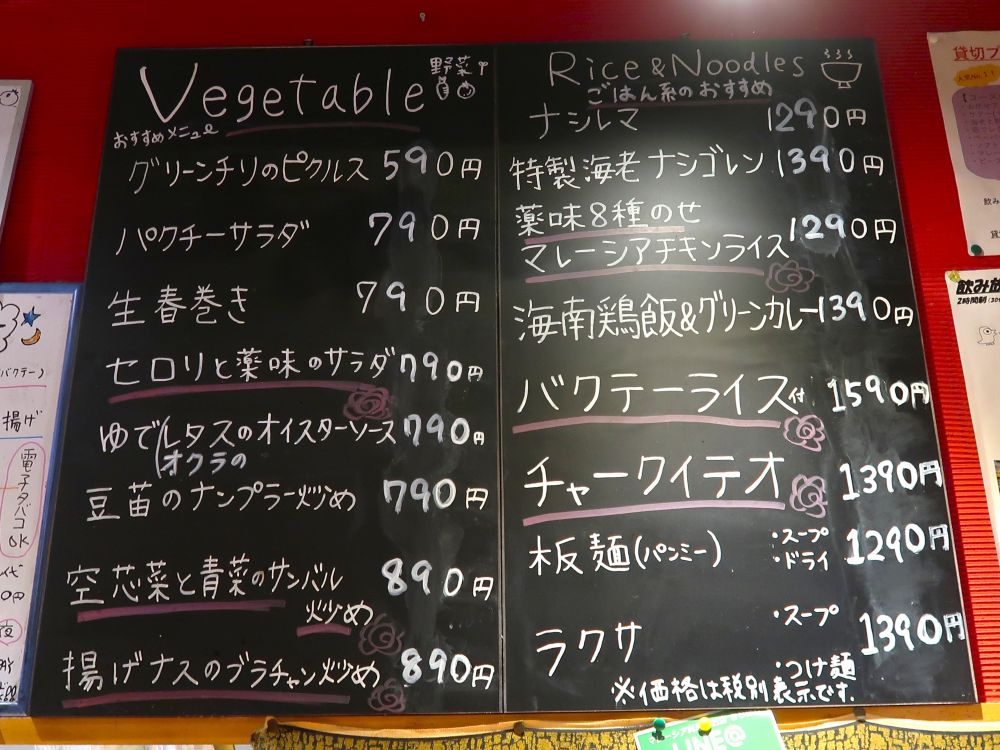 Vegetable 野菜
おすすめメニュー
グリーンチリのピクルス 590円
パクチーサラダ 790円
生春巻き 790円
セロリと薬味のサラダ 790円
ゆでレタスのオイスターソース 790円
オクラの
豆苗のナンプラー炒め 790円
空芯菜と青菜のサンバル 890円
炒め
揚げナスのブラチャン炒め 890円
Rice & Noodles
ごはん系のおすすめ
ナシレマ 1290円
特製海老ナシゴレン 1390円
薬味8種のせ
マレーシアチキンライス 1290円
海南鶏飯&グリーンカレー 1390円
バクテーライス付 1590円
チャークイテオ 1390円
板麺(パンミー) ・スープ 1290円
・ドライ
ラクサ ・スープ 1390円
・つけ麺
※価格は税別表示です.
バクテー)
揚げ
電子タバコOK
0円
貸切プ
飲み放
2時間制
LINE@